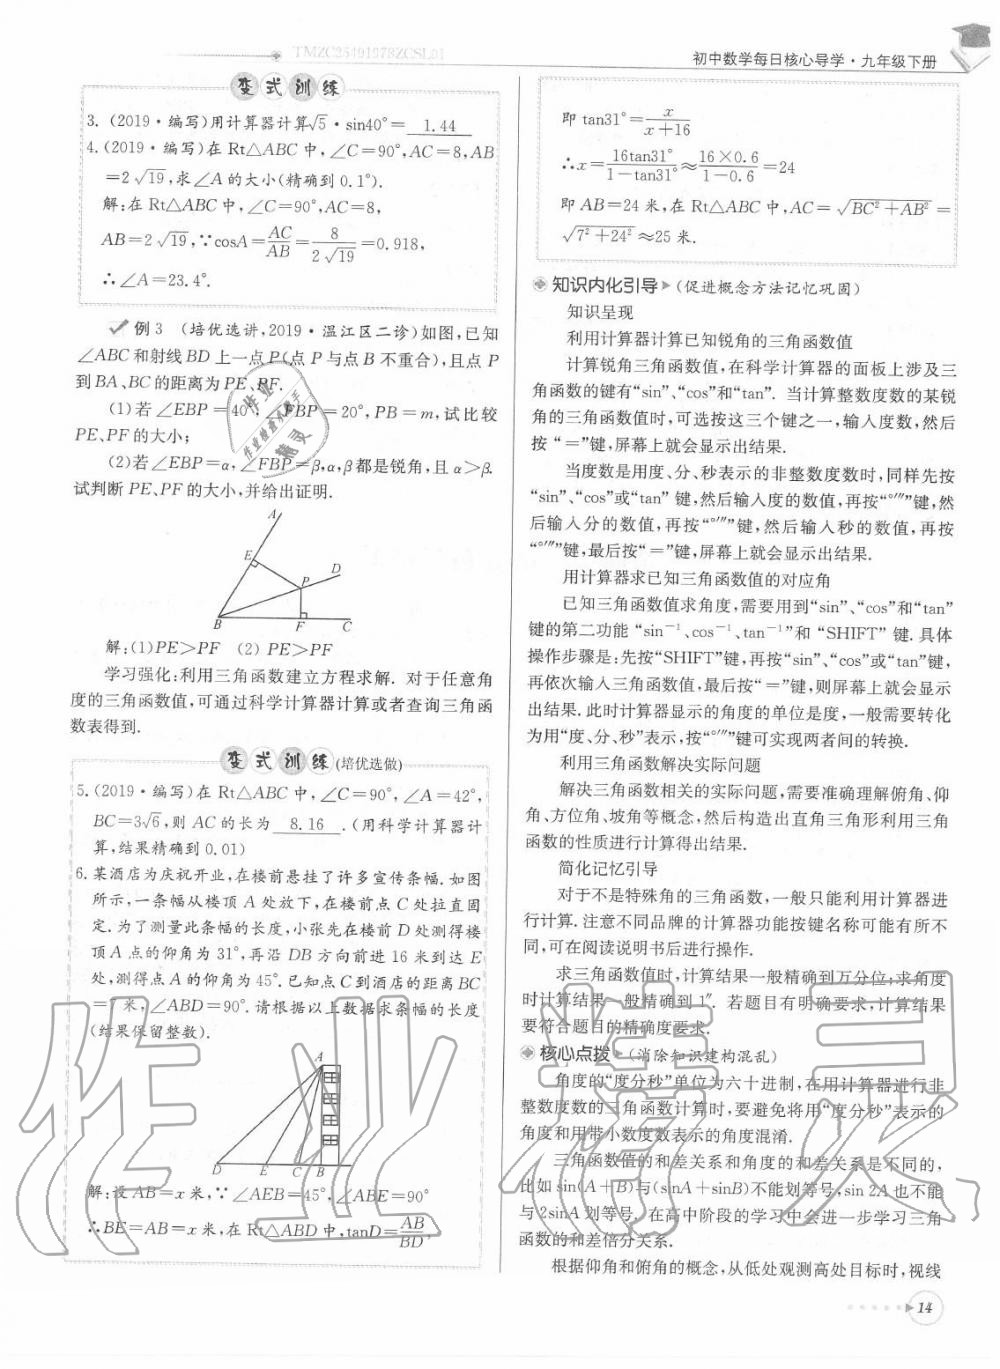 TMZC25401978ZCSL01
初中数学每日核心导学·九年级下册
变式训练
3. (2019·编写)用计算器计算√5·sin40°= 1.44
4. (2019·编写)在 Rt△ABC 中,∠C=90°,AC=8,AB
=2√19,求∠A的大小(精确到 0.1°).
解:在 Rt△ABC 中,∠C=90°,AC=8,
AB=2√19,∵cosA=AC/AB=8/(2√19)=0.918,
∴∠A=23.4°.
例 3 (培优选讲,2019·温江区二诊)如图,已知
∠ABC 和射线 BD 上一点 P(点 P 与点 B 不重合),且点 P
到 BA、BC 的距离为 PE、PF.
(1)若∠EBP=40°,∠FBP=20°,PB=m,试比较
PE、PF 的大小;
(2)若∠EBP=α,∠FBP=β,α,β都是锐角,且 α>β.
试判断 PE、PF 的大小,并给出证明.
A
E
D
P
B
F
C
解:(1)PE>PF (2) PE>PF
学习强化:利用三角函数建立方程求解. 对于任意角
度的三角函数值,可通过科学计算器计算或者查询三角函
数表得到.
变式训练(培优选做)
5. (2019·编写)在 Rt△ABC 中,∠C=90°,∠A=42°,
BC=3√6,则 AC 的长为 8.16 .(用科学计算器计
算,结果精确到 0.01)
6. 某酒店为庆祝开业,在楼前悬挂了许多宣传条幅. 如图
所示,一条幅从楼顶 A 处放下,在楼前点 C 处拉直固
定. 为了测量此条幅的长度,小张先在楼前 D 处测得楼
顶 A 点的仰角为 31°,再沿 DB 方向前进 16 米到达 E
处,测得点 A 的仰角为 45°. 已知点 C 到酒店的距离 BC
=7 米,∠ABD=90°. 请根据以上数据求条幅的长度
(结果保留整数).
A
D
E
C
B
解:设 AB=x 米,∵∠AEB=45°,∠ABE=90°
∴BE=AB=x 米,在 Rt△ABD 中,tanD=AB/BD,
即 tan31°=x/(x+16)
∴x=16tan31°/(1−tan31°)≈(16×0.6)/(1−0.6)=24
即 AB=24 米,在 Rt△ABC 中,AC=√(BC²+AB²)=
√(7²+24²)≈25 米.
知识内化引导▸(促进概念方法记忆巩固)
知识呈现
利用计算器计算已知锐角的三角函数值
计算锐角三角函数值,在科学计算器的面板上涉及三
角函数的键有“sin”、“cos”和“tan”. 当计算整数度数的某锐
角的三角函数值时,可选按这三个键之一,输入度数,然后
按“=”键,屏幕上就会显示出结果.
当度数是用度、分、秒表示的非整数度数时,同样先按
“sin”、“cos”或“tan”键,然后输入度的数值,再按“°′″”键,然
后输入分的数值,再按“°′″”键,然后输入秒的数值,再按
“°′″”键,最后按“=”键,屏幕上就会显示出结果.
用计算器求已知三角函数值的对应角
已知三角函数值求角度,需要用到“sin”、“cos”和“tan”
键的第二功能“sin⁻¹、cos⁻¹、tan⁻¹”和“SHIFT”键. 具体
操作步骤是:先按“SHIFT”键,再按“sin”、“cos”或“tan”键,
再依次输入三角函数值,最后按“=”键,则屏幕上就会显示
出结果. 此时计算器显示的角度的单位是度,一般需要转化
为用“度、分、秒”表示,按“°′″”键可实现两者间的转换.
利用三角函数解决实际问题
解决三角函数相关的实际问题,需要准确理解俯角、仰
角、方位角、坡角等概念,然后构造出直角三角形利用三角
函数的性质进行计算得出结果.
简化记忆引导
对于不是特殊角的三角函数,一般只能利用计算器进
行计算. 注意不同品牌的计算器功能按键名称可能有所不
同,可在阅读说明书后进行操作.
求三角函数值时,计算结果一般精确到万分位;求角度
时计算结果一般精确到 1″. 若题目有明确要求,计算结果
要符合题目的精确度要求.
核心点拨▸(消除知识建构混乱)
角度的“度分秒”单位为六十进制,在用计算器进行非
整数度数的三角函数计算时,要避免将用“度分秒”表示的
角度和用带小数度数表示的角度混淆.
三角函数值的和差关系和角度的和差关系是不同的,
比如 sin(A+B)与(sinA+sinB)不能划等号,sin 2A 也不能
与 2sinA 划等号. 在高中阶段的学习中会进一步学习三角
函数的和差倍分关系.
根据仰角和俯角的概念,从低处观测高处目标时,视线
14
作业精灵